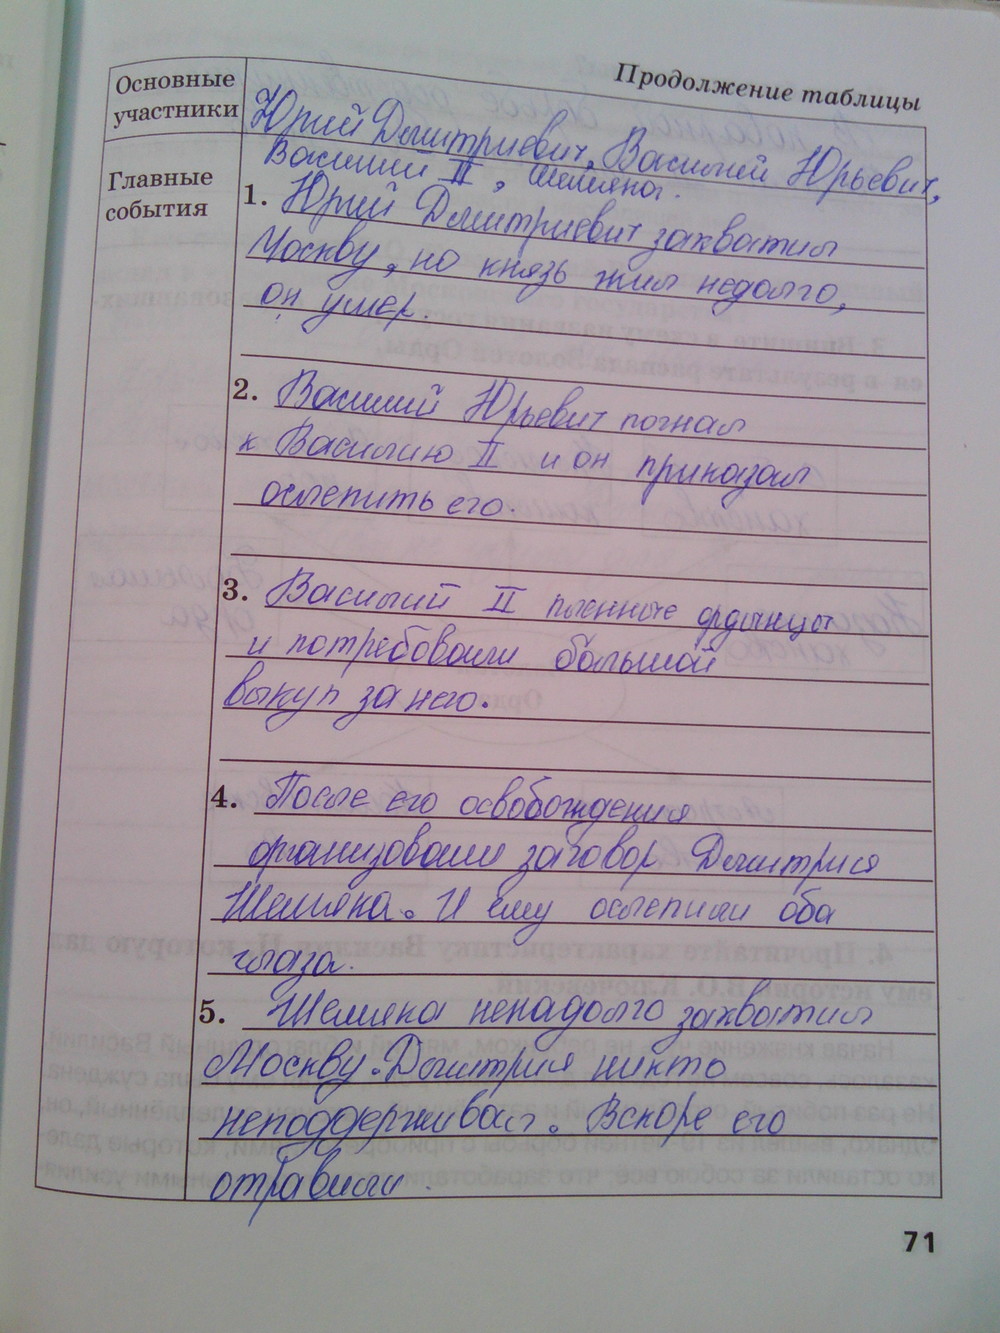 Продолжение таблицы
Основные
участники
Юрий Дмитриевич, Василий Юрьевич,
Василий II, Шемяка.
Главные
события
1. Юрий Дмитриевич захватил
Москву, но князь жил недолго,
он умер
2. Василий Юрьевич погнал
к Василию II и он приказал
ослепить его.
3. Василий II пленные ордынцы
и потребовали большой
выкуп за него.
4. После его освобождения
организовали заговор Дмитрия
Шемяка. И ему ослепили оба
глаза.
5. Шемяка ненадолго захватил
Москву. Дмитрия никто
неподдерживал. Вскоре его
отравили.
71